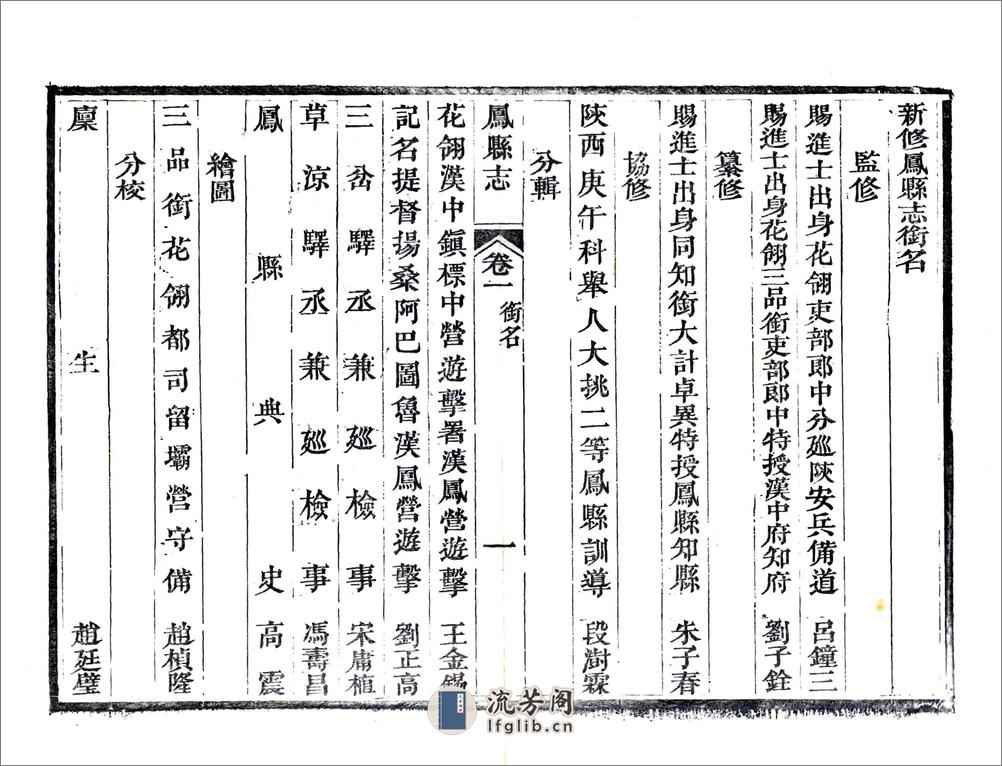 新修鳳縣志銜名
監修
賜進士出身花翎吏部郎中分廵陝安兵備道 呂鐘三
賜進士出身花翎三品銜吏部郎中特授漢中府知府 劉子銓
纂修
賜進士出身同知銜大計卓異特授鳳縣知縣 朱子春
協修
陝西庚午科舉人大挑二等鳳縣訓導 段澍霖
分輯
鳳縣志 卷一 銜名 一
花翎漢中鎭標中營遊擊署漢鳳營遊擊 王金錫
記名提督揚桑阿巴圖魯漢鳳營遊擊 劉正高
三岔驛丞兼廵檢事 宋庸植
草涼驛丞兼廵檢事 馮壽昌
鳳縣典史 高震
繪圖
三品銜花翎都司留壩營守備 趙楨隆
分校
廩生 趙廷璧
流芳阁
lfglib.cn